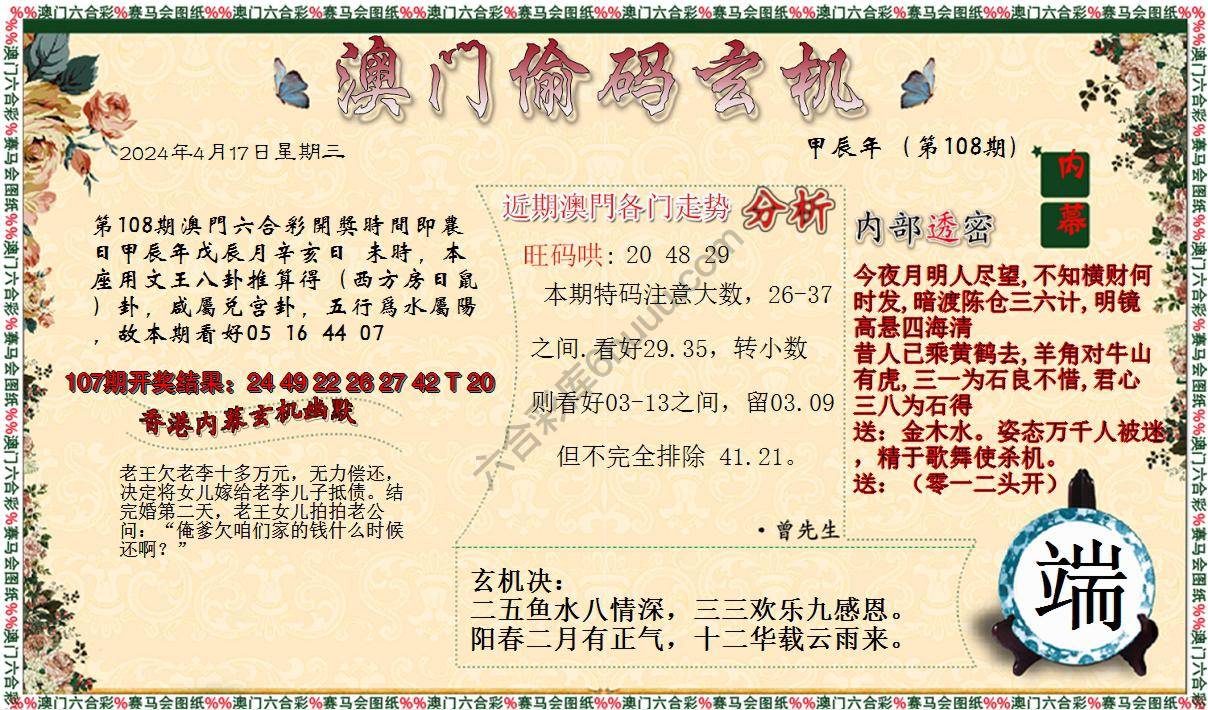 %%澳门六合彩%赛马会图纸%%澳门六合彩%赛马会图纸%%澳门六合彩%赛马会图纸%%澳门六合彩%赛马会图纸%%澳门六合彩%赛马会图纸%%澳门六合彩%赛马会图纸%%
澳门偷码玄机
2024年4月17日星期三
甲辰年（第108期）
内幕
第108期澳門六合彩開獎時間即農
日甲辰年戊辰月辛亥日 未時，本
座用文王八卦推算得（西方房日鼠
）卦，咸屬兌宫卦，五行爲水屬陽
，故本期看好05 16 44 07
107期开奖结果：24 49 22 26 27 42 T 20
香港内幕玄机幽默
老王欠老李十多万元，无力偿还，
决定将女儿嫁给老李儿子抵债。结
完婚第二天，老王女儿拍拍老公
问：“俺爹欠咱们家的钱什么时候
还啊？”
近期澳門各门走势 分析
旺码哄: 20 48 29
本期特码注意大数，26-37
之间.看好29.35，转小数
则看好03-13之间，留03.09
但不完全排除 41.21。
·曾先生
内部透密
今夜月明人尽望,不知横财何
时发,暗渡陈仓三六计,明镜
高悬四海清
昔人已乘黄鹤去,羊角对牛山
有虎,三一为石良不惜,君心
三八为石得
送：金木水。姿态万千人被迷
，精于歌舞使杀机。
送：（零一二头开）
玄机决：
二五鱼水八情深，三三欢乐九感恩。
阳春二月有正气，十二华载云雨来。
端
%%澳门六合彩%赛马会图纸%%澳门六合彩%赛马会图纸%%澳门六合彩%赛马会图纸%%澳门六合彩%赛马会图纸%%澳门六合彩%赛马会图纸%%澳门六合彩%赛马会图纸%%